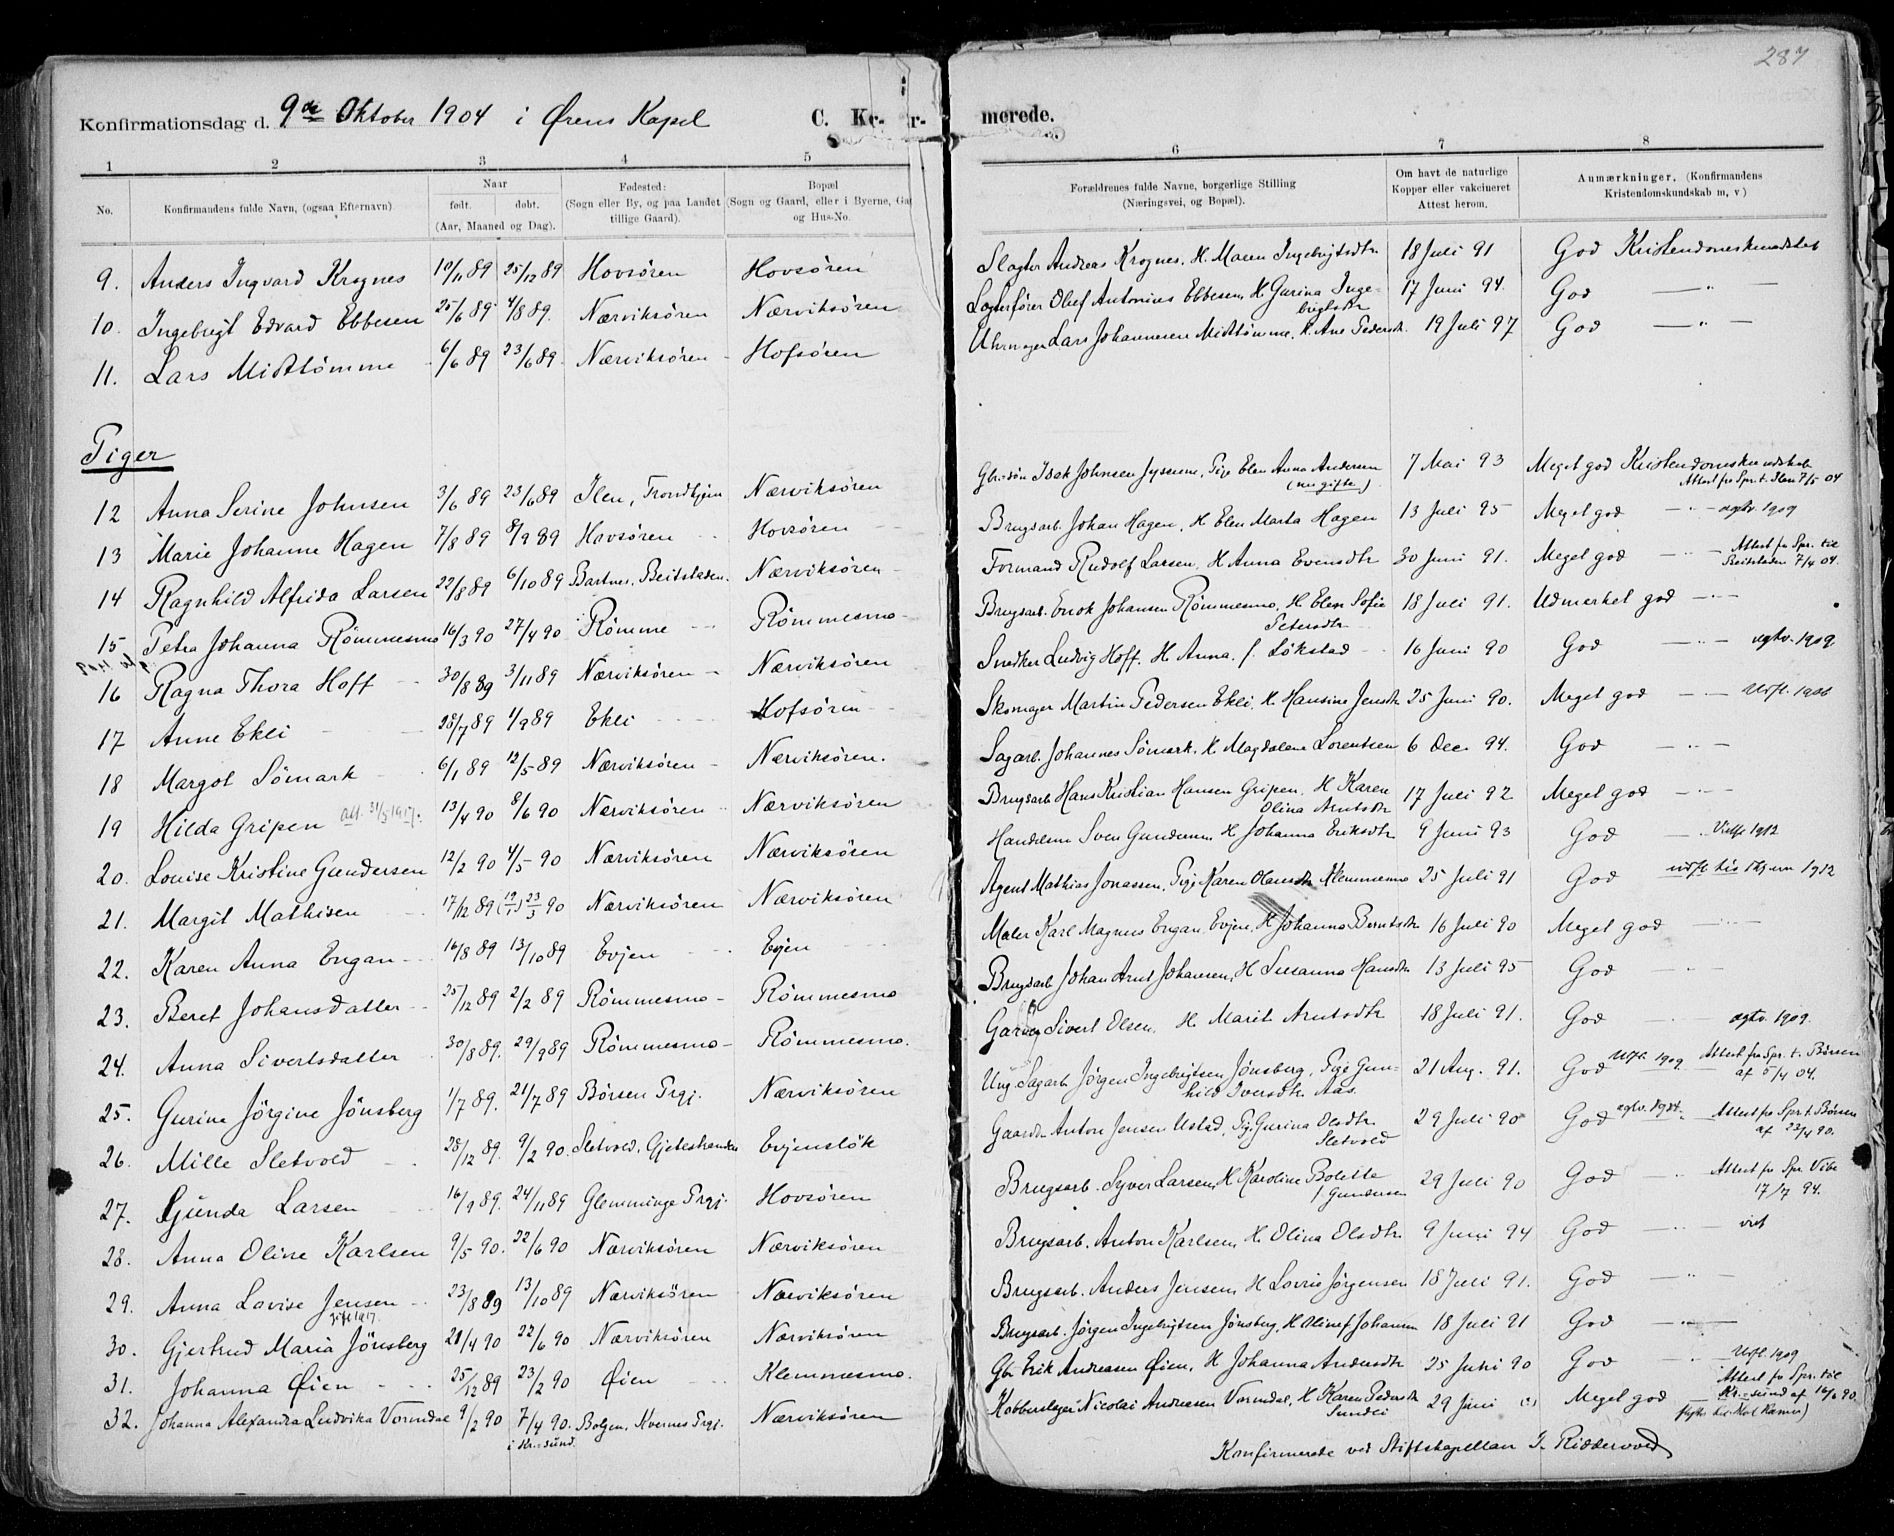 287
Konfirmationsdag d. 9de Oktober 1904 i Ørens Kapel C. Kr- r- merede.
1 2 3 4 5 6 7 8
No. Konfirmandens fulde Navn, (ogsaa Efternavn) Naar født. døbt. (Aar, Maaned og Dag). Fødested: (Sogn eller By, og paa Landet tillige Gaard). Bopæl (Sogn og Gaard, eller i Byerne, Ga og Hus-No. Forældrenes fulde Navne, borgerlige Stilling (Næringsvei, og Bopæl). Om havt de naturlige Kopper eller vakcineret Attest herom. Anmærkninger, (Konfirmandens Kristendomskundskab m, v)
9. Anders Ingvard Krognes 10/11 89 25/12 89 Hovsören Hovsören Slagter Andreas Krognes. H. Maren Ingebrigtsdtr 18 Juli 91 God Kristendomskundskab
10. Ingebrigt Edvard Ebbesen 25/6 89 4/8 89. Nærviksören Nærviksören Olef Antonius Ebbesen, H. Gurina Ingebrigtsdtr 17 Juni 94. God — " —
11. Lars Midttömme 6/6 89 23/6 89. Nærviksören Hofsören Uhrmager Lars Johannesen Midttömme. H. Ane Pedersdtr. 19 Juli 97 God — " —
Piger
12 Anna Serine Johnsen 3/6 89 23/6 89 Ilen, Trondhjem Nærviksören Gbr.sön Isak Johnsen, Pige Elen Anna Andersen (nu gifte) 7 Mai 93 Meget god Kristendomskundskab Attest fra Spr. t. Ilen 7/5 04
13 Marie Johanne Hagen 7/8 89 8/9 89 Hovsören Hovsören Brugsarb. Johan Hagen, H Elen Marta Hagen 13 Juli 95 Meget god — " — agtv 1909
14 Ragnhild Alfrida Larsen 22/8 89 6/10 89 Bartnes, Beitstaden. Nærviksören Formand Rudolf Larsen, H Anna Evensdtr 30 Juni 91. Meget god — " — Attest fra Spr. til Beitstaden 7/4 04.
15 Petra Johanna Römmesmo 16/3 90 27/4 90 Römme Römmesmo Brugsarb. Enok Johansen Römmesmo, H Elen Sofie Petersdtr 18 Juli 91. Udmærket god — " —
16 Ragna Thora Hoff 30/8 89 3/11 89 Nærviksören Nærviksören Snedker Ludvig Hoff. H Anna f. Lökstad 16 Juni 90 God — " — agtv. 1909
17 Anne Ekli 28/7 89 1/9 89 Ekli Hofsören Skomager Martin Pedersen Ekli, H. Hansine Jensdtr 25 Juni 90. Meget god — " —
18 Margot Sömark 6/1 89 12/5 89 Nærviksören Nærviksören. Sagarb. Johannes Sömark. H Magdalena Lorentsen 6 Dec. 94. God — " —
19 Hilda Gripen att. 31/5 1917. 13/4 90 8/6 90 Nærviksören Nærviksören Brugsarb Hans Kristian Hansen Gripen, H Karen Olina Arntsdtr 17 Juli 92 Meget god — " —
20. Louise Kristine Gundersen 12/2 90 4/5 90 Nærviksören Nærviksören Sven Gundersen, H. Johanna Eriksdtr 9 Juni 93 God — " 1912
21. Margit Mathisen 17/12 89 (19/1) 23/3 90 Nærviksören Nærviksören Agent Mathias Jonassen, Pige Karen Olausdtr Klemmesmo 25 Juli 91 God 1912
22. Karen Anna Engan 16/8 89 13/10 89 Evjen Evjen Maler Karl Magnus Engan, Evjen, H Johanna Berntsdtr 16 Juli 90 Meget god
23. Beret Johansdatter 25/12 89 2/2 89 Römmesmo Römmesmo Brugsarb Johan Arnt Johansen, H Susanna Hansdtr 13 Juli 95 God
24. Anna Sivertsdatter 30/8 89. 29/9 89 Römmesmo Römmesmo. Sivert Olsen, H. Marit Arntsdtr 18 Juli 91. God agtv. 1909.
25. Gurine Jörgine Jönsberg 1/7 89. 21/7 89 Börsen Prgj. Nærviksören Ung. Sagarb. Jörgen Ingebrigtsen Jönsberg, Pige Gunhild Iversdtr Aas. 21 Aug. 91. God 1909 Attest fra Spr. t. Börsen af 5/4 04.
26. Mille Sletvold 28/12 89. 9/2 90. Sletvold, Gjetestranden Evjenslök Gaardbr Anton Jensen Ustad, Pig. Gurina Olsdtr Sletvold 29 Juli 90 God Attest fra Spr. t. Börsen af 23/4 90.
27. Gunda Larsen 16/9 89. 24/11 89 Glemminge Prgj. Hovsören Brugsarb. Syver Larsen, H Karoline Bolette f Gundersen 29 Juli 90 God Attest fra Spr. Vibe 17/7 94.
28. Anna Oline Karlsen 9/5 90. 22/6 90 Nærviksören Nærviksören Brugsarb. Anton Karlsen, H. Olina Olsdtr 9 Juni 94 God — " —
29. Anna Lovise Jensen 23/8 89 13/10 89 Nærviksören Nærviksören Brugsarb. Anders Jensen, H Lovise Jörgensen 18 Juli 91. God — " —
30. Gjertrud Maria Jönsberg 21/4 90 22/6 90 Nærviksören Nærviksören Brugsarb. Jörgen Ingebrigtsen Jönsberg, H Oline f Johansen 18 Juli 91 God — " —
31. Johanna Öien 25/12 89 23/2 90 Öien Klemmesmo. Gbr. Erik Andreasen Öien, H Johanna Andersdtr 25 Juni 90 God — " — 1909
32. Johanna Alexandra Ludvika Vormdal 9/2 90 7/4 90. i Kr.sund. Bolgen, Kvernes Prgj. Nærviksören Kobberslager Nicolai Andreasen Vormdal, H Karen Pedersdtr Sundli 29 Juni Meget god Attest fra Spr. til Kr.sund af 16/6 90.
Konfirmerede ved Stiftskapellan J. Riddervold